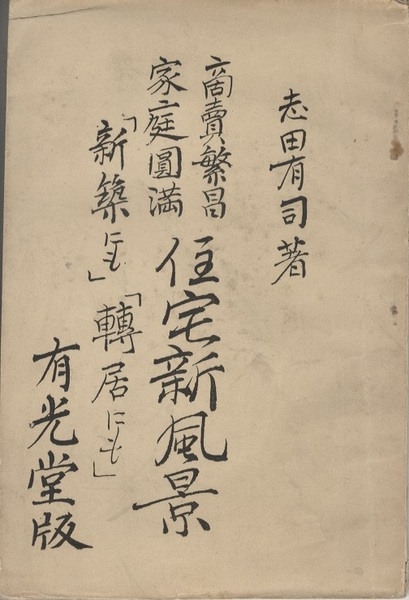 志田有司著
商賣繁昌
家庭圓満
住宅新風景
「新築にも」「轉居にも」
有光堂版